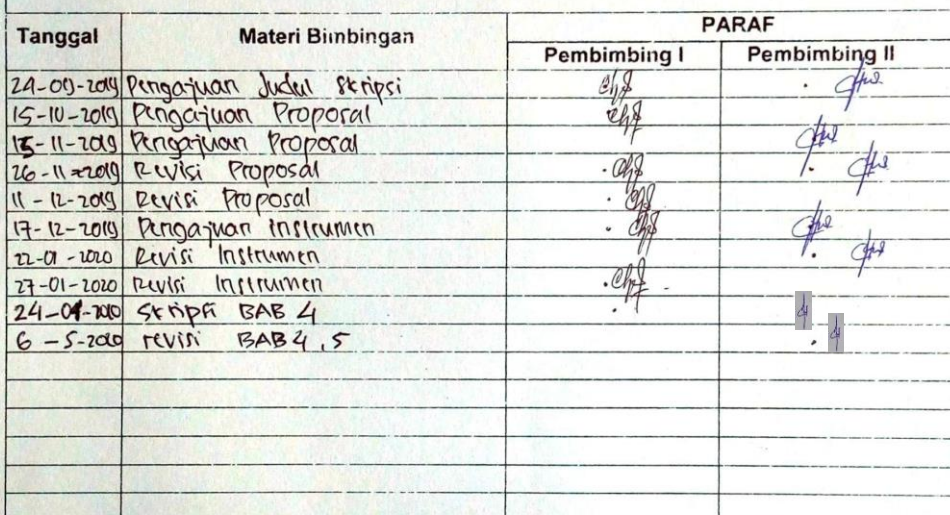 Tanggal Materi Bimbingan PARAF
Pembimbing I Pembimbing II
24-09-2019 Pengajuan Judul Skripsi
15-10-2019 Pengajuan Proposal
15-11-2019 Pengajuan Proposal
26-11-2019 Revisi Proposal
11-12-2019 Revisi Proposal
17-12-2019 Pengajuan instrumen
22-01-2020 Revisi Instrumen
27-01-2020 Revisi Instrumen
24-04-2020 Skripsi BAB 4
6-5-2020 revisi BAB 4,5